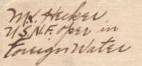 Mr. Hecker
U.S.N.F. oper in
Foreign Water